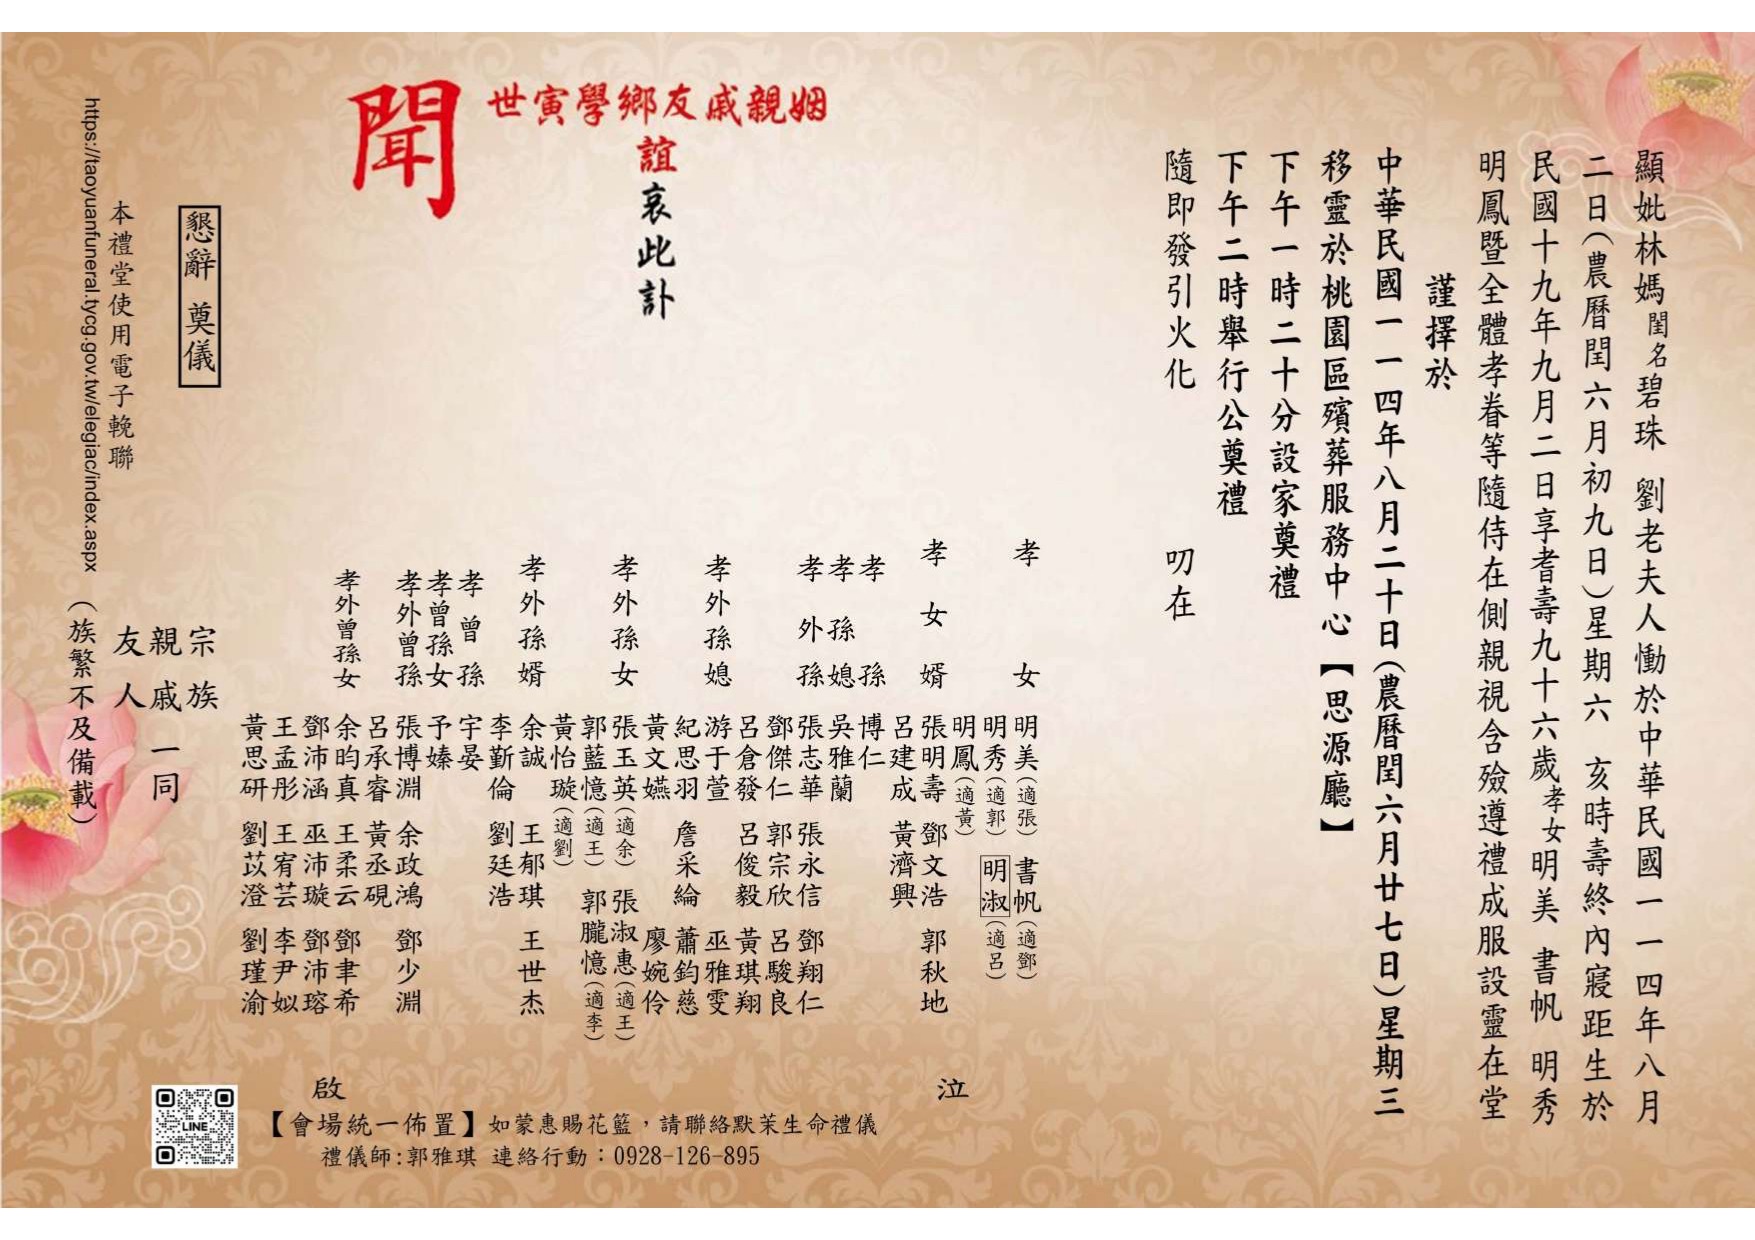 顯妣林媽閨名碧珠 劉老夫人慟於中華民國一一四年八月
二日(農曆閏六月初九日)星期六 亥時壽終內寢距生於
民國十九年九月二日享耆壽九十六歲孝女明美 書帆 明秀
明鳳暨全體孝眷等隨侍在側親視含殮遵禮成服設靈在堂
謹擇於
中華民國一一四年八月二十日(農曆閏六月廿七日)星期三
移靈於桃園區殯葬服務中心【思源廳】
下午一時二十分設家奠禮
下午二時舉行公奠禮
隨即發引火化 叨在
世寅學鄉友戚親姻
誼哀此訃
聞
孝女 明美(適張) 書帆(適鄧)
明秀(適郭) 明淑(適呂)
明鳳(適黃)
孝女婿 張明壽 鄧文浩 郭秋地
呂建成 黃濟興
孝孫 博仁
孝孫媳 吳雅蘭
孝外孫 張志華 張永信 鄧翔仁
鄧傑仁 郭宗欣 呂駿良
呂倉發 呂俊毅 黃琪翔
孝外孫媳 游于萱 巫雅雯
紀思羽 詹采綸 蕭鈞慈
黃文嬿 廖婉伶
孝外孫女 張玉英(適余) 張淑惠(適王)
郭藍憶(適王) 郭朧憶(適李)
黃怡璇(適劉)
孝外孫婿 余誠 王郁琪 王世杰
李勤倫 劉廷浩
孝曾孫 宇晏
孝曾孫女 予嫀
孝外曾孫 張博淵 余政鴻 鄧少淵
呂承睿 黃丞硯
孝外曾孫女 余昀真 王柔云 鄧聿希
鄧沛涵 巫沛璇 鄧沛瑢
王孟彤 王宥芸 李尹姒
黃思研 劉苡澄 劉瑾渝
泣
啟
宗族
親戚一同
友人
(族繁不及備載)
懇辭 奠儀
本禮堂使用電子輓聯
https://taoyuanfuneral.tycg.gov.tw/elegiac/index.aspx
LINE
【會場統一佈置】如蒙惠賜花籃，請聯絡默茉生命禮儀
禮儀師:郭雅琪 連絡行動：0928-126-895